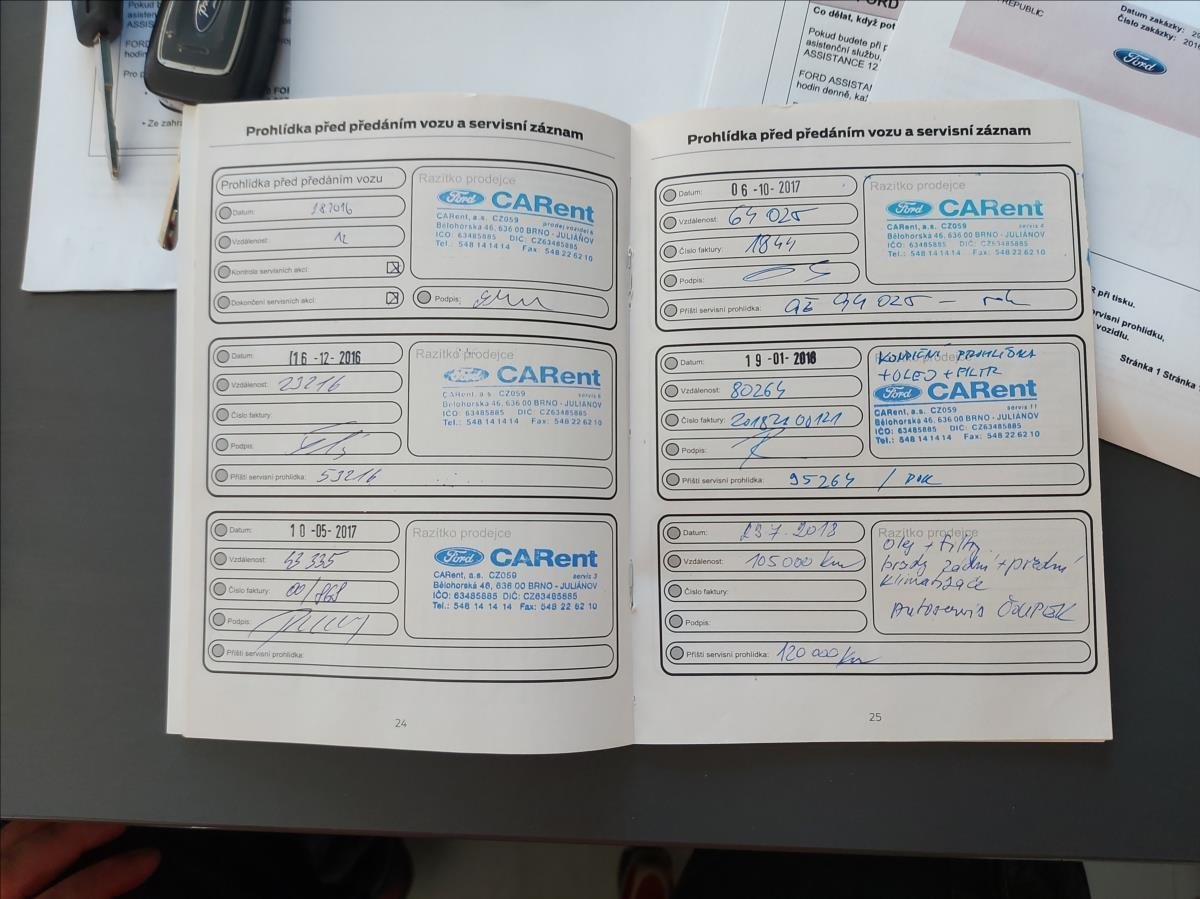 Pokud b
asisten
ASSIST
FORD
hodin
Pro p
• Ze zahr
Ford
FORD
Co dělat, když pot
Pokud budete při p
asistenční službu,
ASSISTANCE 12
FORD ASSISTA
hodin denně, ka
REPUBLIC
Datum zakázky: 29
Číslo zakázky: 2016
Ford
R při tisku.
ervisní prohlídku,
vozidlu.
Stránka 1 Stránka
Prohlídka před předáním vozu a servisní záznam
Prohlídka před předáním vozu
Datum:
Vzdálenost: 12
Kontrola servisních akcí:
Dokončení servisních akcí:
Razítko prodejce
Ford CARent
CARent, a.s. CZ059 prodej vozidel 6
Bělohorská 46, 636 00 BRNO - JULIÁNOV
IČO: 63485885 DIČ: CZ63485885
Tel.: 548 14 14 14 Fax: 548 22 62 10
Podpis:
Datum: 16 -12- 2016
Vzdálenost: 23216
Číslo faktury:
Podpis:
Příští servisní prohlídka: 53216
Razítko prodejce
Ford CARent
CARent, a.s. CZ059 servis 6
Bělohorská 46, 636 00 BRNO - JULIÁNOV
IČO: 63485885 DIČ: CZ63485885
Tel.: 548 14 14 14 Fax: 548 22 62 10
Datum: 10 -05- 2017
Vzdálenost: 43 335
Číslo faktury:
Podpis:
Příští servisní prohlídka:
Razítko prodejce
Ford CARent
CARent, a.s. CZ059 servis 3
Bělohorská 46, 636 00 BRNO - JULIÁNOV
IČO: 63485885 DIČ: CZ63485885
Tel.: 548 14 14 14 Fax: 548 22 62 10
24
Prohlídka před předáním vozu a servisní záznam
Datum: 06 -10- 2017
Vzdálenost: 64 025
Číslo faktury: 1844
Podpis:
Příští servisní prohlídka: až 94 025 - rok
Razítko prodejce
Ford CARent
CARent, a.s. CZ059 servis 4
Bělohorská 46, 636 00 BRNO - JULIÁNOV
IČO: 63485885 DIČ: CZ63485885
Tel.: 548 14 14 14 Fax: 548 22 62 10
Datum: 19 -01- 2018
Vzdálenost: 80264
Číslo faktury: 20182100121
Podpis:
Příští servisní prohlídka: 95264 / rok
Razítko prodejce
KONDIČNÍ PROHLÍDKA
+ OLEJ + FILTR
Ford CARent
CARent, a.s. CZ059 servis 11
Bělohorská 46, 636 00 BRNO - JULIÁNOV
IČO: 63485885 DIČ: CZ63485885
Tel.: 548 14 14 14 Fax: 548 22 62 10
Datum: 23 7. 2018
Vzdálenost: 105 000 km
Číslo faktury:
Podpis:
Příští servisní prohlídka: 120 000 km
Razítko prodejce
Olej + filtr
brzdy zadní + přední
klimatizace
Autoservis ČOUPEK
25